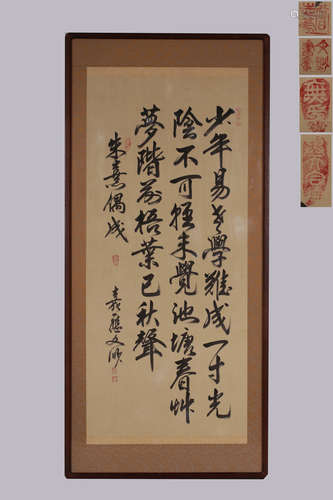 少年易老學難成一寸光
陰不可輕未覺池塘春艸
夢階前梧葉已秋聲
朱熹偶成